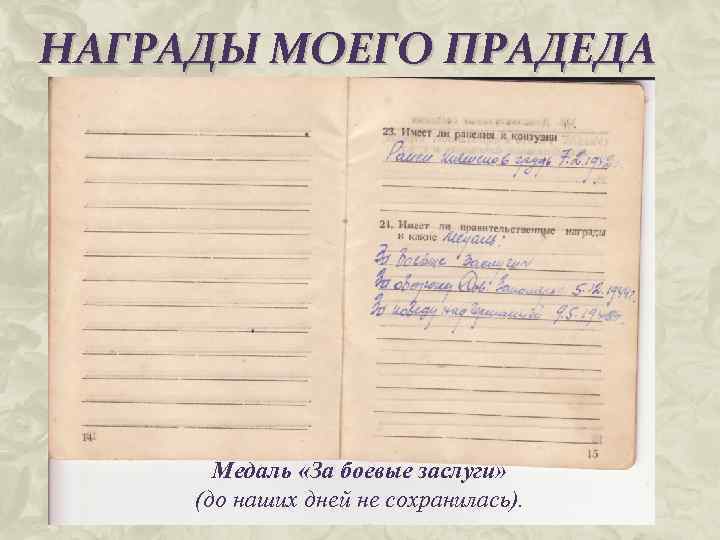 НАГРАДЫ МОЕГО ПРАДЕДА
23. Имеет ли ранения и контузии
Ранен в грудь 7.2.1942г.
24. Имеет ли правительственные награды
и какие Медаль:
За боевые заслуги
За оборону Сов. Заполярья 5.12.1944г.
За победу над Германией 9.5.1945г.
14
15
Медаль «За боевые заслуги»
(до наших дней не сохранилась).